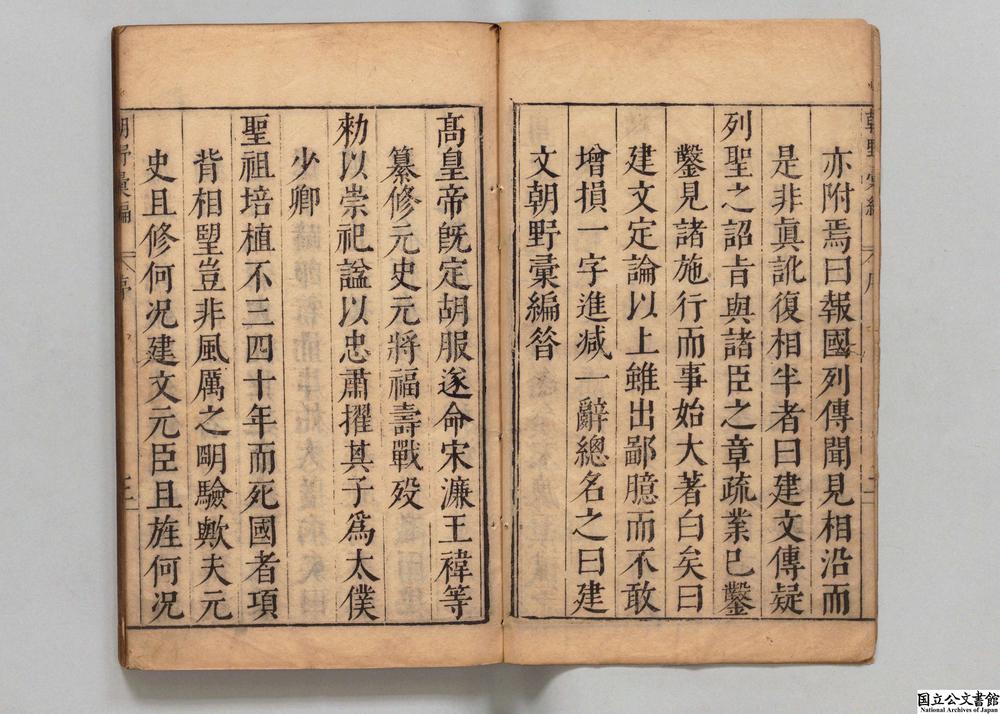 亦附焉曰報國列傳聞見相沿而
是非真訛復相半者曰建文傳疑
列聖之詔旨與諸臣之章疏業已鑿
鑿見諸施行而事始大著白矣曰
建文定論以上雖出鄙臆而不敢
增損一字進減一辭總名之曰建
文朝野彙編昝
高皇帝旣定胡服遂命宋濂王褘等
纂修元史元將福壽戰歿
勑以崇祀諡以忠肅擢其子爲太僕
少卿
聖祖培植不三四十年而死國者項
背相望豈非風厲之明驗歟夫元
史且修何况建文元臣且旌何况
朝野彙編 序
国立公文書館
National Archives of Japan